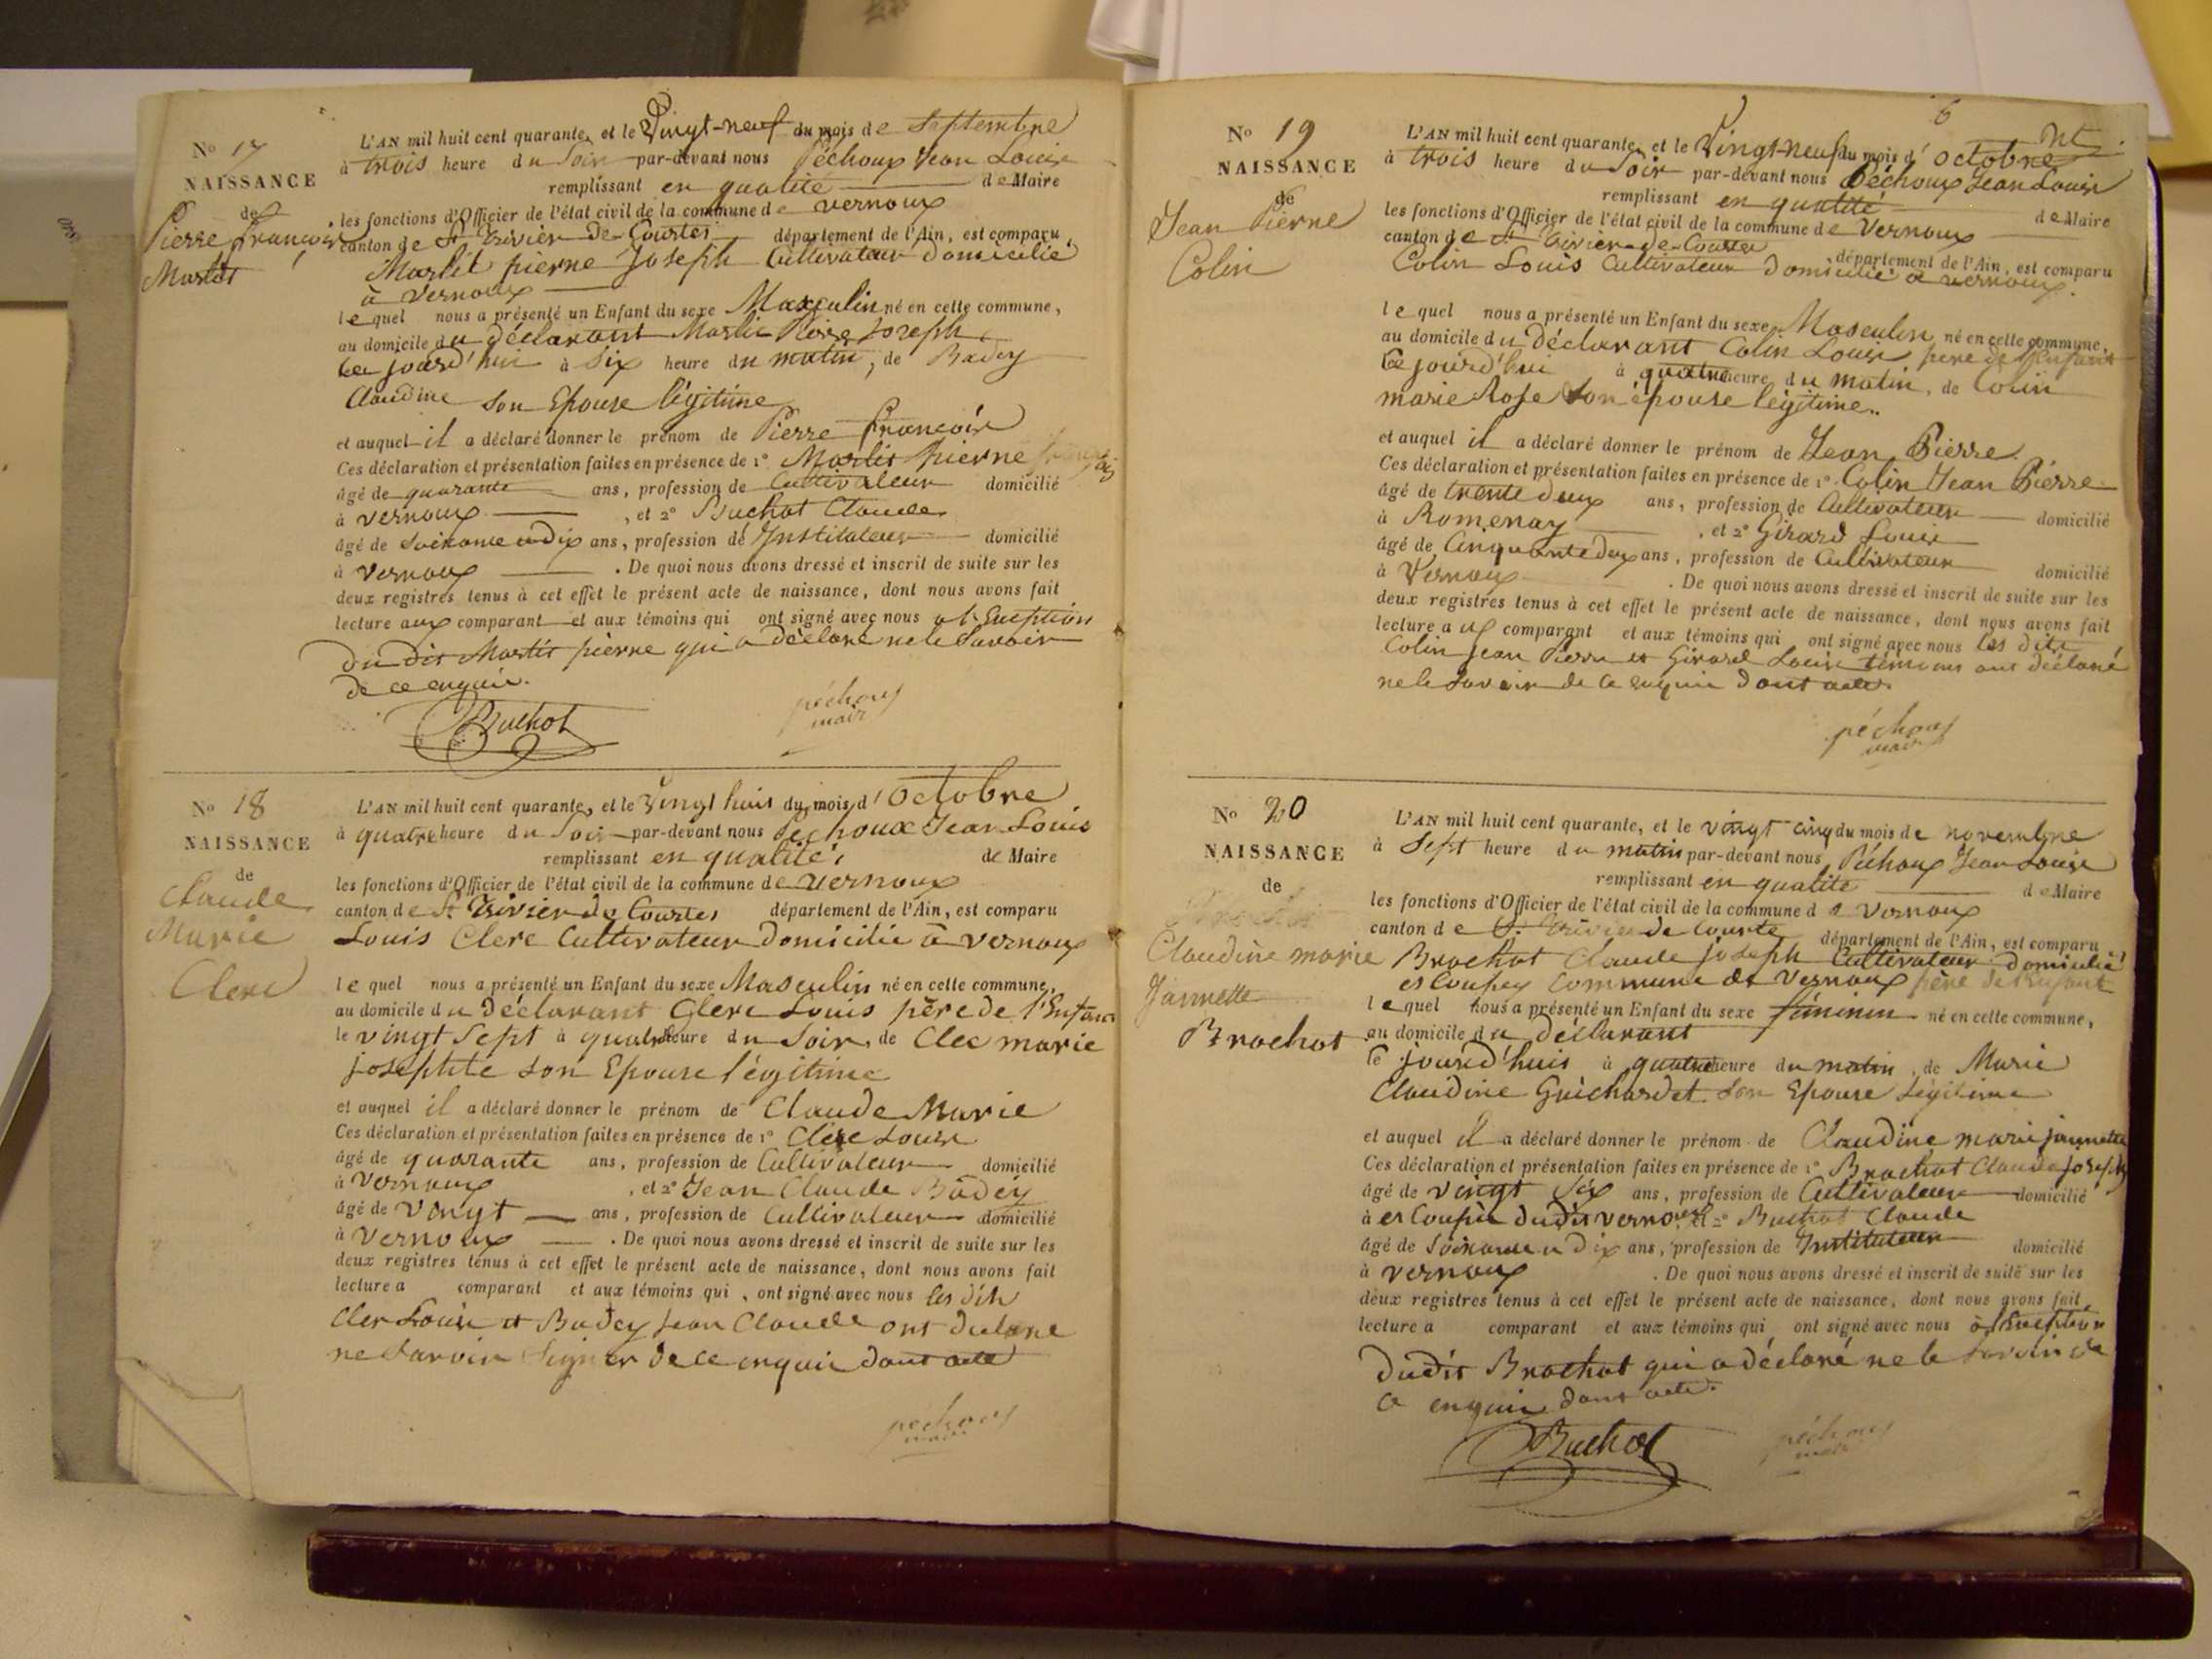 N° 17
NAISSANCE
de
Pierre françois
Marlit
L'AN mil huit cent quarante, et le Vingt-neuf du mois de Septembre
à trois heure du Soir par-devant nous Péchoux Jean Louis
remplissant en qualité de Maire
les fonctions d'Officier de l'état civil de la commune de Vernoux
canton de St Trivier de Courtes département de l'Ain, est comparu
Marlit pierre Joseph Cultivateur Domicilié
à Vernoux
lequel nous a présenté un Enfant du sexe Masculin né en cette commune,
au domicile du déclarant Marlit Joseph
Ce jourd'hui à Six heure du matin, de Badey
Claudine Son Epouse légitime
et auquel il a déclaré donner le prénom de Pierre françois
Ces déclaration et présentation faites en présence de 1° Marlit pierre françois
âgé de quarante ans, profession de Cultivateur domicilié
à Vernoux, et 2° Buchot Claude
âgé de Soixante et dix ans, profession de Instituteur domicilié
à Vernoux. De quoi nous avons dressé et inscrit de suite sur les
deux registres tenus à cet effet le présent acte de naissance, dont nous avons fait
lecture aux comparant et aux témoins qui ont signé avec nous a l'Exception
du dit Marlit pierre qui a déclaré ne le Savoir
de ce enquis.
Buchot péchoux
maire
N° 18
NAISSANCE
de
Claude
Marie
Clerc
L'AN mil huit cent quarante, et le Vingt huit du mois d'Octobre
à quatre heure du Soir par-devant nous Péchoux Jean Louis
remplissant en qualité de Maire
les fonctions d'Officier de l'état civil de la commune de Vernoux
canton de St Trivier de Courtes département de l'Ain, est comparu
Louis Clerc Cultivateur Domicilié à Vernoux
lequel nous a présenté un Enfant du sexe Masculin né en cette commune,
au domicile du déclarant Clerc Louis père de l'Enfant
le vingt Sept à quatre heure du Soir, de Clec marie
josephte son Epouse légitime
et auquel il a déclaré donner le prénom de Claude Marie
Ces déclaration et présentation faites en présence de 1° Clerc Louis
âgé de quarante ans, profession de Cultivateur domicilié
à Vernoux, et 2° Jean Claude Badey
âgé de Vingt ans, profession de Cultivateur domicilié
à Vernoux. De quoi nous avons dressé et inscrit de suite sur les
deux registres tenus à cet effet le présent acte de naissance, dont nous avons fait
lecture a comparant et aux témoins qui, ont signé avec nous les dits
Cler Louis et Badey Jean Claude ont declare
ne Savoir Signer de ce enquis dont acte
péchoux
maire
6
N° 19
NAISSANCE
de
Jean Pierre
Colin
L'AN mil huit cent quarante, et le Vingt-neuf du mois d'octobre
à trois heure du Soir par-devant nous Péchoux Jean Louis
remplissant en qualité de Maire
les fonctions d'Officier de l'état civil de la commune de Vernoux
canton de St Trivier de Courtes département de l'Ain, est comparu
Colin Louis Cultivateur Domicilié à vernoux.
lequel nous a présenté un Enfant du sexe Masculin né en cette commune,
au domicile du déclarant Colin Louis père de l'Enfant
Ce jourd'hui à quatre heure du matin, de Colin
marie Rose Son épouse légitime..
et auquel il a déclaré donner le prénom de Jean Pierre.
Ces déclaration et présentation faites en présence de 1° Colin Jean Pierre
âgé de trente deux ans, profession de Cultivateur domicilié
à Romenay, et 2° Girard Louis
âgé de Cinquante deux ans, profession de Cultivateur domicilié
à Vernoux. De quoi nous avons dressé et inscrit de suite sur les
deux registres tenus à cet effet le présent acte de naissance, dont nous avons fait
lecture aux comparant et aux témoins qui ont signé avec nous les dits
Colin Jean Pierre et Girard Louis témoins ont déclaré
ne le Savoir de ce enquis dont acte.
péchoux
maire
N° 20
NAISSANCE
de
Claudine marie
Jannette
Brochot
L'AN mil huit cent quarante, et le vingt cinq du mois de novembre
à Sept heure du matin par-devant nous Péchoux Jean Louis
remplissant en qualité de Maire
les fonctions d'Officier de l'état civil de la commune de Vernoux
canton de St Trivier de Courte département de l'Ain, est comparu
Brochot Claude joseph Cultivateur domicilié
es Coupey Commune de Vernoux père de l'enfant
lequel nous a présenté un Enfant du sexe féminin né en cette commune,
au domicile du déclarant
le jourd'huis à quatre heure du matin, de Marie
Claudine Guichardet Son Epouse légitime
et auquel il a déclaré donner le prénom de Claudine marie jannette
Ces déclaration et présentation faites en présence de 1° Brochot Claude joseph
âgé de vingt Six ans, profession de Cultivateur domicilié
à es Coupée dudit vernoux, et 2° Buchot Claude
âgé de Soixante et dix ans, profession de Instituteur domicilié
à vernoux. De quoi nous avons dressé et inscrit de suite sur les
deux registres tenus à cet effet le présent acte de naissance, dont nous avons fait
lecture a comparant et aux témoins qui ont signé avec nous à l'Exception
dudit Brochot qui a déclaré ne le Savoir de
ce enquis dont acte.
Buchot péchoux
maire